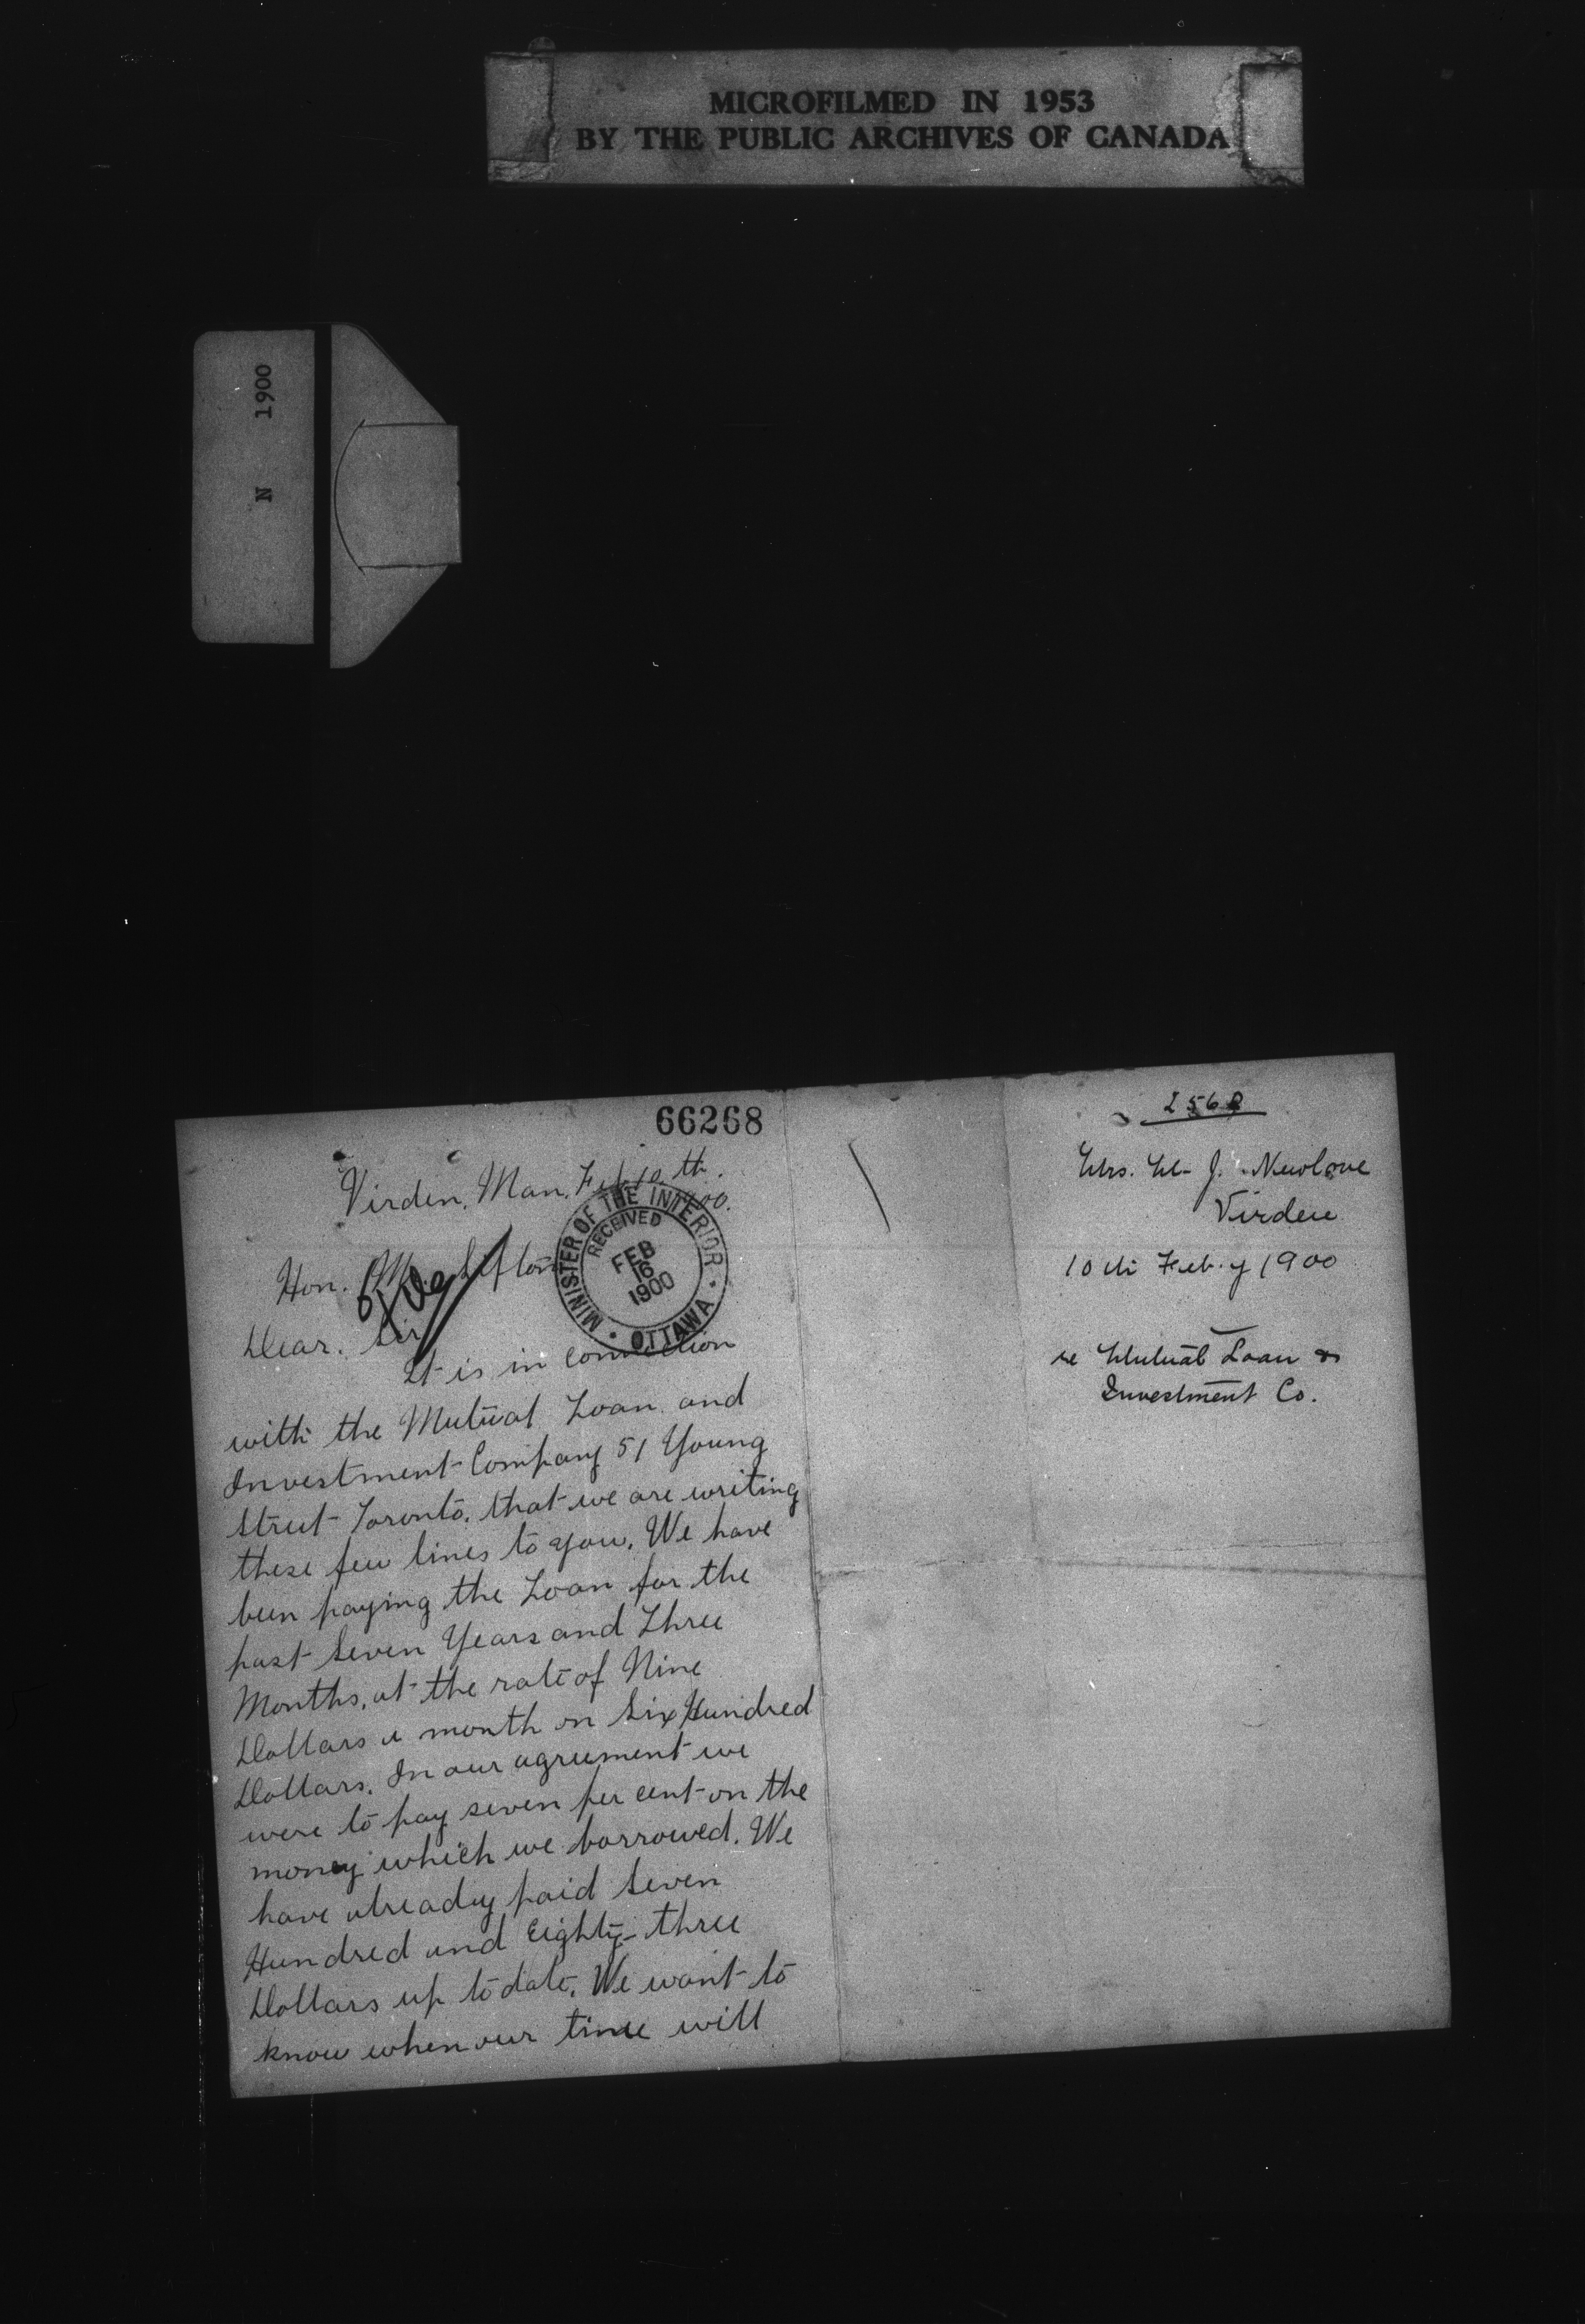 MICROFILMED IN 1953
BY THE PUBLIC ARCHIVES OF CANADA
N 1900
66268
Virden, Man, Feb 10th.
00.
Hon. Mr. Sifton
File
MINISTER OF THE INTERIOR
RECEIVED
FEB
16
1900
OTTAWA
Dear. Sir
It is in connection
with the Mutual Loan and
Investment Company 51 Young
Street Toronto. that we are writing
these few lines to you. We have
been paying the Loan for the
past Seven Years and Three
Months, at the rate of Nine
Dollars a month on Six Hundred
Dollars. In our agreement we
were to pay seven per cent on the
money which we borrowed. We
have already paid Seven
Hundred and Eighty-three
Dollars up to date. We want to
know when our time will
2568
Mrs. W. J. Newlove
Virden
10th Feb.y 1900
re Mutual Loan &
Investment Co.